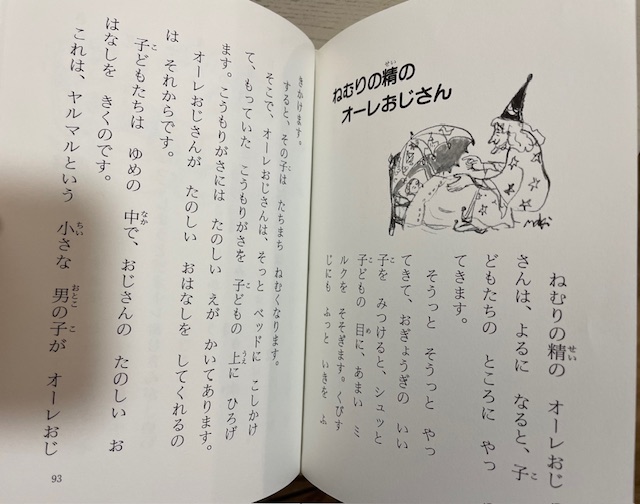 ねむりの精の
オーレおじさん
ねむりの精の オーレおじ
さんは、よるに なると、子
どもたちの ところに やっ
てきます。
そうっと そうっと やっ
てきて、おぎょうぎの いい
子を みつけると、シュッと
子どもの 目に、あまい ミ
ルクを そそぎます。くびす
じにも ふっと いきを ふ
きかけます。
すると、その子は たちまち ねむくなります。
そこで、オーレおじさんは、そっと ベッドに こしかけ
て、もっていた こうもりがさを 子どもの 上に ひろげ
ます。こうもりがさには たのしい えが かいてあります。
オーレおじさんが たのしい おはなしを してくれるの
は それからです。
子どもたちは ゆめの 中で、おじさんの たのしい お
はなしを きくのです。
これは、ヤルマルという 小さな 男の子が オーレおじ
93